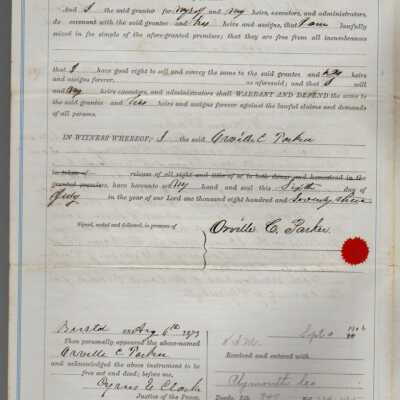 And I the said grantor for myself and my heirs, executors, and administrators,
do covenant with the said grantee and his heirs and assigns, that I am lawfully
seized in fee simple of the afore-granted premises; that they are free from all incumbrances
that I have good right to sell and convey the same to the said grantee and his heirs
and assigns forever, as aforesaid; and that I will
and my heirs, executors, and administrators shall WARRANT AND DEFEND the same to
the said grantee and his heirs and assigns forever against the lawful claims and demands
of all persons.
IN WITNESS WHEREOF, I the said Orville C Parker
in token of release of all right and title of or to both dower and homestead in the
granted premises, have hereunto set my hand and seal this Sixth day of
in the year of our Lord one thousand eight hundred and Seventy three
Signed, sealed and delivered, in presence of
Orville C. Parker
Bristol ss. Aug 6th 1873
Then personally appeared the above-named
Orville C Parker
and acknowledged the above instrument to be
free act and deed; before me,
Cyrus Clark
Justice of the Peace.
Sept
Received and entered with
Plymouth Co